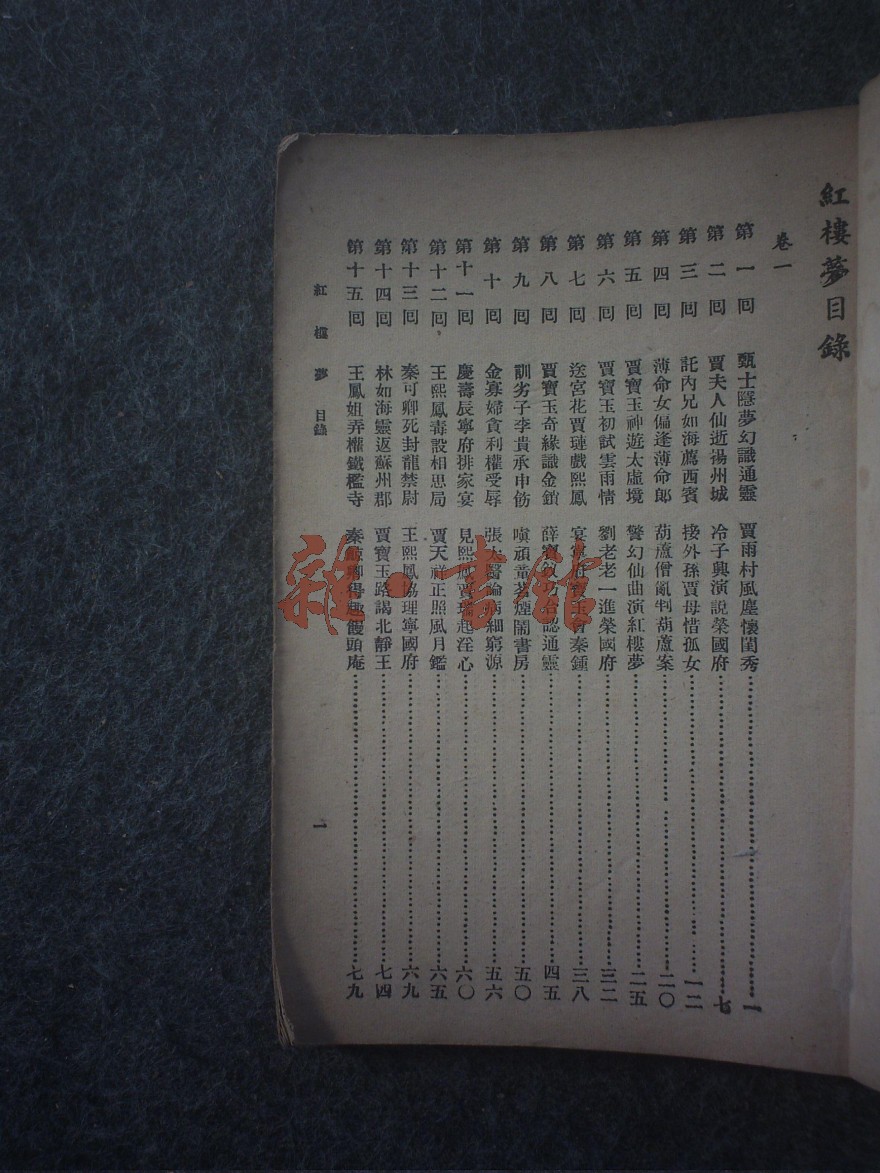 紅樓夢目錄
卷一
第一回 甄士隱夢幻識通靈 賈雨村風塵懷閨秀 一
第二回 賈夫人仙逝揚州城 冷子興演説榮國府 七
第三回 託內兄如海薦西賓 接外孫賈母惜孤女 一二
第四回 薄命女偏逢薄命郎 葫蘆僧亂判葫蘆案 二〇
第五回 賈寶玉神遊太虛境 警幻仙曲演紅樓夢 二五
第六回 賈寶玉初試雲雨情 劉老老一進榮國府 三二
第七回 送宮花賈璉戲熙鳳 宴寧府寶玉會秦鍾 三八
第八回 賈寶玉奇緣識金鎖 薛寶釵巧合認通靈 四五
第九回 訓劣子李貴承申飭 嗔頑童茗煙鬧書房 五〇
第十回 金寡婦貪利權受辱 張太醫論病細窮源 五六
第十一回 慶壽辰寧府排家宴 見熙鳳賈瑞起淫心 六〇
第十二回 王熙鳳毒設相思局 賈天祥正照風月鑑 六五
第十三回 秦可卿死封龍禁尉 王熙鳳協理寧國府 六九
第十四回 林如海靈返蘇州郡 賈寶玉路謁北靜王 七四
第十五回 王鳳姐弄權鐵檻寺 秦鯨卿得趣饅頭庵 七九
紅樓夢 目錄 一
雜·書館